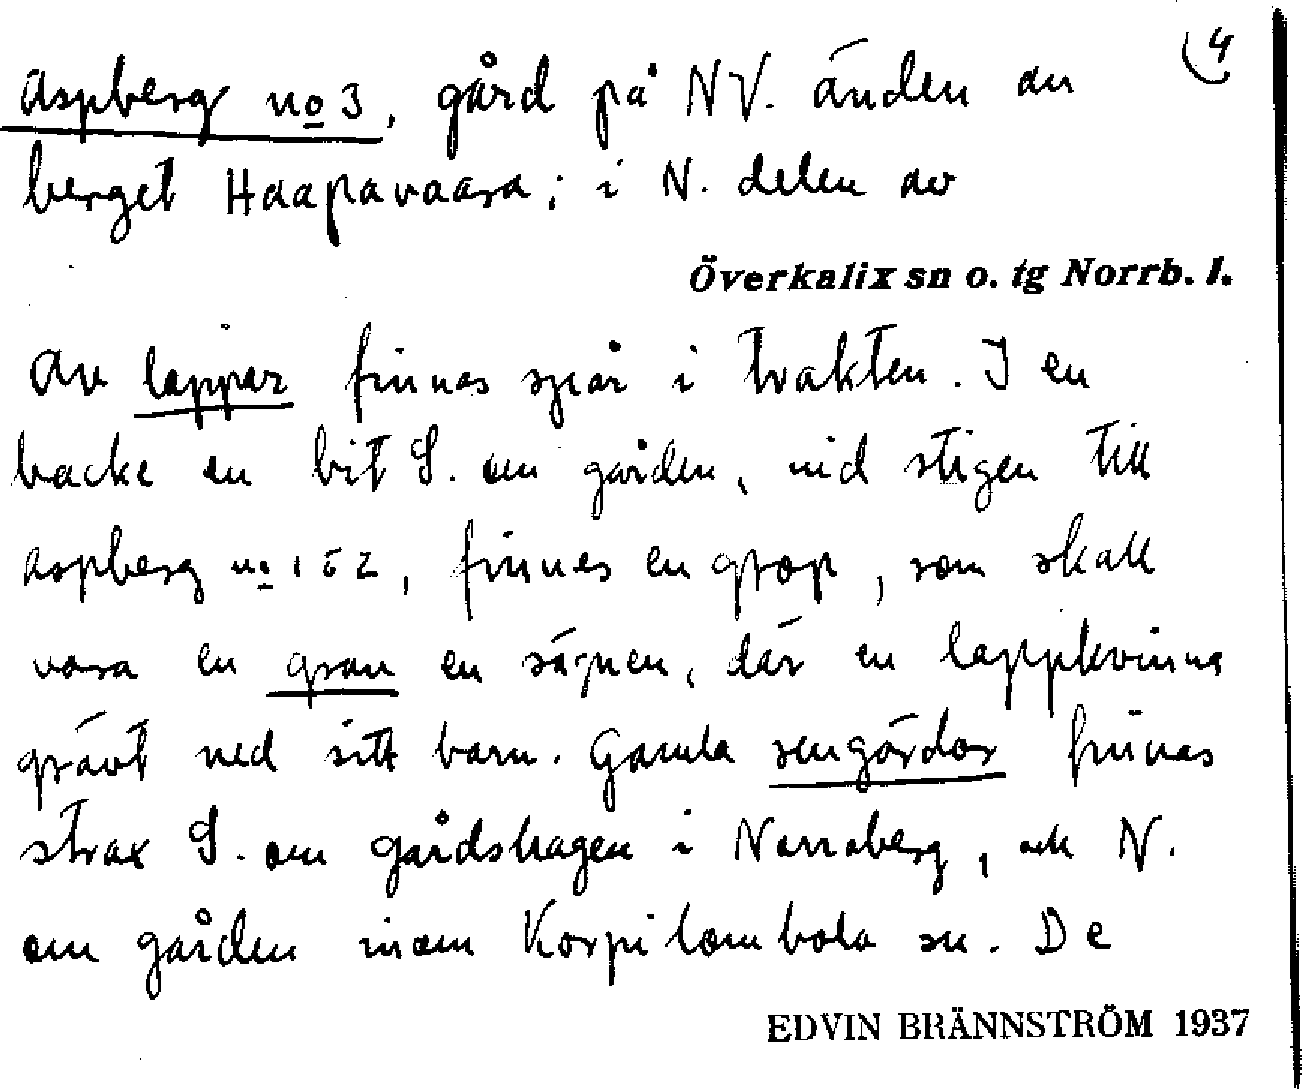 (4
Aspberg no 3, gård på NV. änden av
berget Haapavaara; i N. delen av
Överkalix sn o. tg Norrb. l.
Av lappar finnas spår i trakten. I en
backe en bit S. om gården, vid stigen till
Aspberg no 1 o 2, finnes en grop, som skall
vara en grav en sägnen, där en lappkvinna
grävt ned sitt barn. Gamla rengärdor finnas
strax S. om gårdshagen i Norraberg, och N.
om gården inom Korpilombolo sn. De
EDVIN BRÄNNSTRÖM 1937